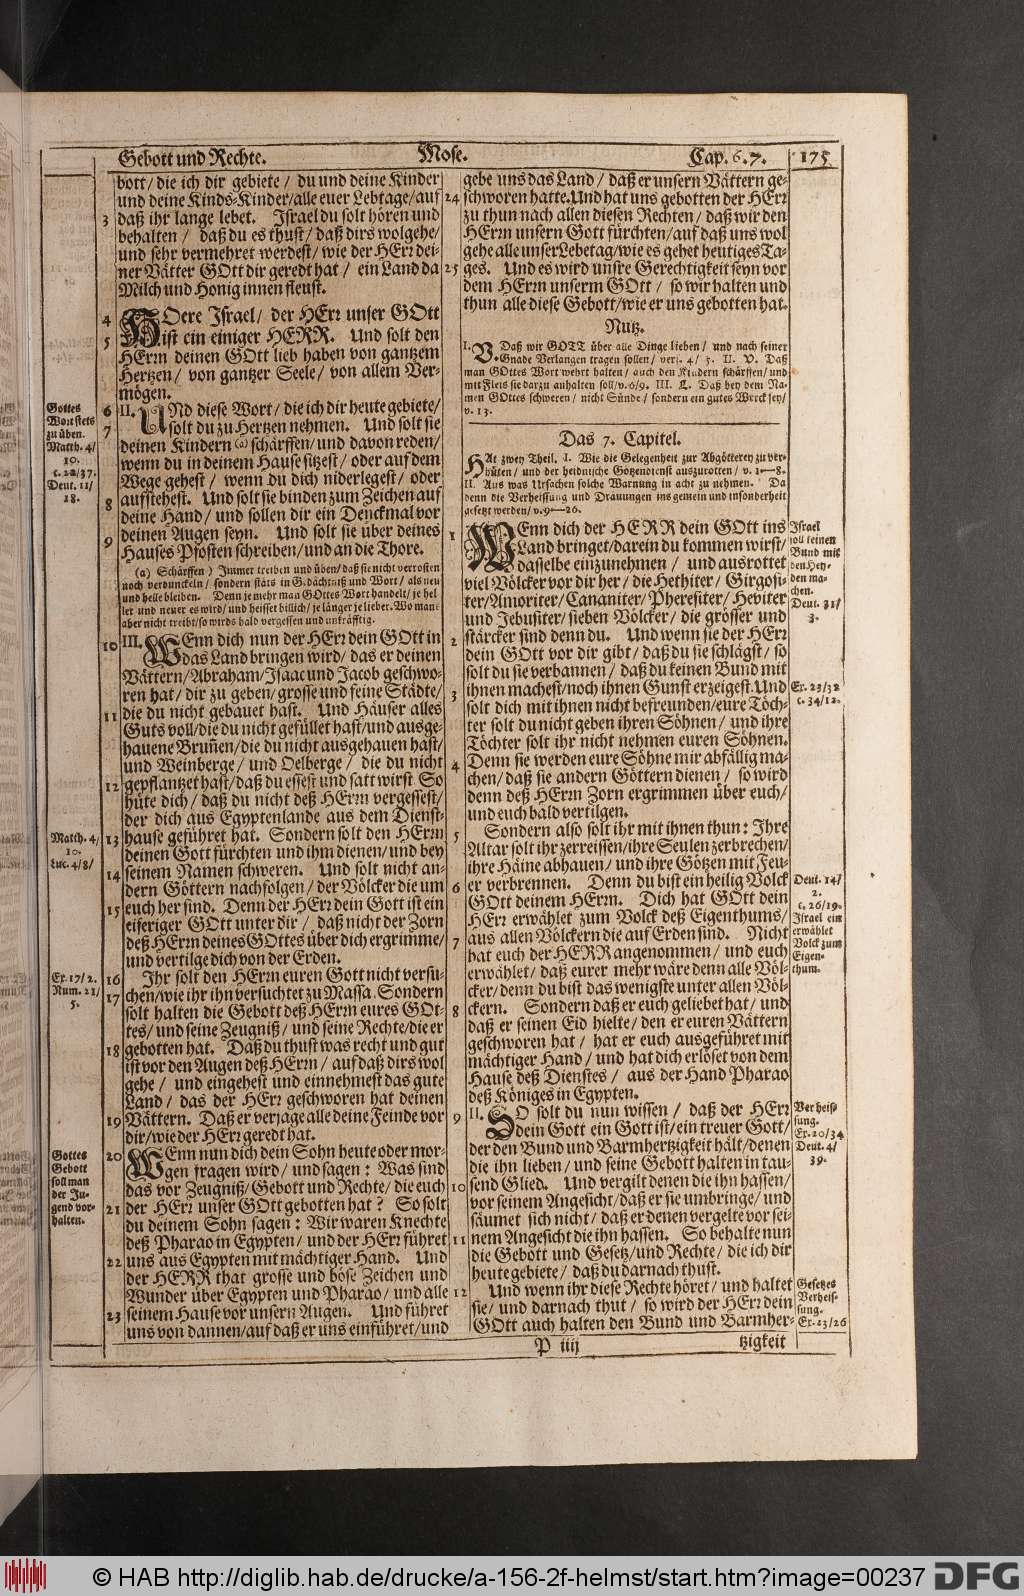 Gebott und Rechte. Mose. Cap. 6. 7. 175
bott/ die ich dir gebiete/ du und deine Kinder
und deine Kinds-Kinder/alle euer Lebtage/auf
3 daß ihr lange lebet. Israel du solt hören und
behalten/ daß du es thust/ daß dirs wolgehe/
und sehr vermehret werdest/ wie der HErr dei-
ner Vätter GOtt dir geredt hat/ ein Land da
Milch und Honig innen fleust.
4 HOere Israel/ der HErr unser GOtt
5 ist ein einiger HERR. Und solt den
HErrn deinen GOtt lieb haben von gantzem
Hertzen/ von gantzer Seele/ von allem Ver-
mögen.
Gottes
Wort stets
zu üben.
Matth. 4/
10.
c. 22/37.
Deut. 11/
18.
6 II. UNd diese Wort/ die ich dir heute gebiete/
7 solt du zu Hertzen nehmen. Und solt sie
deinen Kindern (a) schärffen/und davon reden/
wenn du in deinem Hause sitzest/ oder auf dem
Wege gehest/ wenn du dich niderlegest/ oder
8 aufstehest. Und solt sie binden zum Zeichen auf
deine Hand/ und sollen dir ein Denckmal vor
9 deinen Augen seyn. Und solt sie über deines
Hauses Pfosten schreiben/und an die Thore.
(a) Schärffen) Immer treiben und üben/daß sie nicht verrosten
noch verdunckeln/ sondern stäts in Gedächtniß und Wort/ als neu
und helle bleiben. Denn je mehr man GOttes Wort handelt/ je hel
ler und neuer es wird/ und heisset billich/ je länger je lieber. Wo man
aber nicht treibt/so wirds bald vergessen und unkräfftig.
10 III. WEnn dich nun der HErr dein GOtt in
das Land bringen wird/ das er deinen
Vättern/Abraham/Isaac und Jacob geschwo-
ren hat/ dir zu geben/ grosse und feine Städte/
11 die du nicht gebauet hast. Und Häuser alles
Guts voll/die du nicht gefüllet hast/und ausge-
hauene Bruñen/die du nicht ausgehauen hast/
und Weinberge/ und Oelberge/ die du nicht
12 gepflantzet hast/daß du essest und satt wirst. So
hüte dich/ daß du nicht deß HErrn vergessest/
der dich aus Egyptenlande aus dem Dienst-
Matth. 4/
10.
Luc. 4/8/
13 hause geführet hat. Sondern solt den HErrn
deinen Gott fürchten und ihm dienen/und bey
14 seinem Namen schweren. Und solt nicht an-
dern Göttern nachfolgen/ der Völcker die um
15 euch her sind. Denn der HErr dein Gott ist ein
eiferiger GOtt unter dir/ daß nicht der Zorn
deß HErrn deines GOttes über dich ergrimme/
und vertilge dich von der Erden.
Ex. 17/2.
Num. 21/
5.
16 Ihr solt den HErrn euren Gott nicht versu-
17 chen/wie ihr ihn versuchtet zu Massa. Sondern
solt halten die Gebott deß HErrn eures GOt-
tes/ und seine Zeugniß/ und seine Rechte/die er
18 gebotten hat. Daß du thust was recht und gut
ist vor den Augen deß HErrn/ auf daß dirs wol
gehe/ und eingehest und einnehmest das gute
Land/ das der HErr geschworen hat deinen
19 Vättern. Daß er verjage alle deine Feinde vor
dir/wie der HErr geredt hat.
Gottes
Gebott
soll man
der Ju-
gend vor-
halten.
20 WEnn nun dich dein Sohn heute oder mor-
gen fragen wird/ und sagen: Was sind
das vor Zeugniß/Gebott und Rechte/ die euch
21 der HErr unser GOtt gebotten hat? So solt
du deinem Sohn sagen: Wir waren Knechte
deß Pharao in Egypten/ und der HErr führet
22 uns aus Egypten mit mächtiger Hand. Und
der HERR that grosse und böse Zeichen und
Wunder über Egypten und Pharao/ und alle
23 seinem Hause vor unsern Augen. Und führet
uns von dannen/auf daß er uns einführet/und
gebe uns das Land/ daß er unsern Vättern ge-
24 schworen hatte. Und hat uns gebotten der HErr
zu thun nach allen diesen Rechten/ daß wir den
HErrn unsern Gott fürchten/auf daß uns wol
gehe alle unser Lebetag/wie es gehet heutiges Ta-
25 ges. Und es wird unsre Gerechtigkeit seyn vor
dem HErrn unserm GOtt/ so wir halten und
thun alle diese Gebott/wie er uns gebotten hat.
Nutz.
I. V. Daß wir GOTT über alle Dinge lieben/ und nach seiner
Gnade Verlangen tragen sollen/ vers. 4/ 5. II. V. Daß
man GOttes Wort wehrt halten/ auch den Kindern schärffen/ und
mit Fleis sie darzu anhalten soll/v. 6/9. III. L. Daß bey dem Na-
men GOttes schweren/ nicht Sünde/ sondern ein gutes Werck sey/
v. 13.
Das 7. Capitel.
HAt zwey Theil. I. Wie die Gelegenheit zur Abgötterey zu ver-
hüten/ und der heidnische Götzendienst auszurotten/ v. 1—8.
II. Aus was Ursachen solche Warnung in acht zu nehmen. Da
denn die Verheissung und Drauungen ins gemein und insonderheit
gesetzt werden/ v. 9—26.
1 WEnn dich der HERR dein GOtt ins
Land bringet/darein du kommen wirst/
dasselbe einzunehmen/ und ausrottet
viel Völcker vor dir her/ die Hethiter/ Girgosi-
ter/Amoriter/Cananiter/Pheresiter/ Heviter
und Jebusiter/ sieben Völcker/ die grösser und
Israel
soll keinen
Bund mit
den Hey-
den ma-
chen.
Deut. 31/
3.
2 stärcker sind denn du. Und wenn sie der HErr
dein GOtt vor dir gibt/ daß du sie schlägst/ so
solt du sie verbannen/ daß du keinen Bund mit
3 ihnen machest/noch ihnen Gunst erzeigest. Und
solt dich mit ihnen nicht befreunden/eure Töch-
ter solt du nicht geben ihren Söhnen/ und ihre
Töchter solt ihr nicht nehmen euren Söhnen.
Ex. 23/32
c. 34/12.
4 Denn sie werden eure Söhne mir abfällig ma-
chen/ daß sie andern Göttern dienen/ so wird
denn deß HErrn Zorn ergrimmen über euch/
und euch bald vertilgen.
5 Sondern also solt ihr mit ihnen thun: Ihre
Altar solt ihr zerreissen/ihre Seulen zerbrechen/
ihre Häine abhauen/ und ihre Götzen mit Feu-
6 er verbrennen. Denn du bist ein heilig Volck
GOtt deinem HErrn. Dich hat GOtt dein
HErr erwählet zum Volck deß Eigenthums/
7 aus allen Völckern die auf Erden sind. Nicht
hat euch der HERR angenommen/ und euch
erwählet/ daß eurer mehr wäre denn alle Völ-
cker/ denn du bist das wenigste unter allen Völ-
Deut. 14/
2.
c. 26/19.
Israel ein
erwählet
Volck zum
Eigen-
thum.
8 ckern. Sondern daß er euch geliebet hat/ und
daß er seinen Eid hielte/ den er euren Vättern
geschworen hat/ hat er euch ausgeführet mit
mächtiger Hand/ und hat dich erlöset von dem
Hause deß Dienstes/ aus der Hand Pharao
deß Königes in Egypten.
9 II. SO solt du nun wissen/ daß der HErr
dein Gott ein Gott ist/ein treuer Gott/
der den Bund und Barmhertzigkeit hält/denen
die ihn lieben/ und seine Gebott halten in tau-
10 send Glied. Und vergilt denen die ihn hassen/
vor seinem Angesicht/ daß er sie umbringe/ und
säumet sich nicht/ daß er denen vergelte vor sei-
11 nem Angesicht die ihn hassen. So behalte nun
die Gebott und Gesetz/und Rechte/ die ich dir
heute gebiete/ daß du darnach thust.
Verheis-
sung.
Ex. 20/34
Deut. 4/
39.
12 Und wenn ihr diese Rechte höret/ und haltet
sie/ und darnach thut/ so wird der HErr dein
GOtt auch halten den Bund und Barmher-
Gesetzes
Verheis-
sung.
Ex. 23/26
P iiij tzigkeit
© HAB http://diglib.hab.de/drucke/a-156-2f-helmst/start.htm?image=00237 DFG